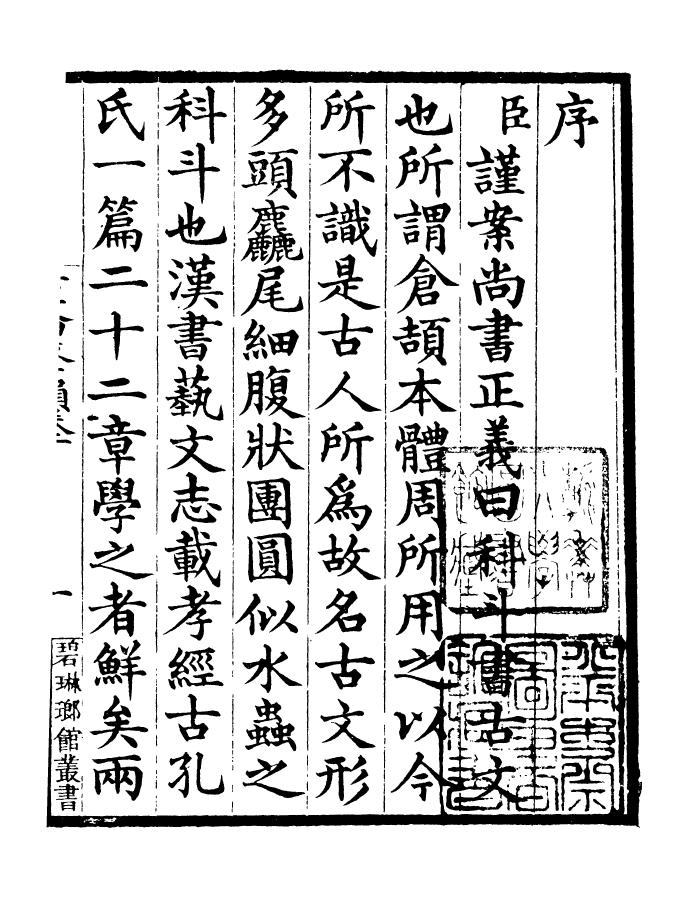 序
臣謹案尚書正義曰科斗書古文
也所謂倉頡本體周所用之以今
所不識是古人所為故名古文形
多頭麤尾細腹狀團圓似水蟲之
科斗也漢書藝文志載孝經古孔
氏一篇二十二章學之者鮮矣兩
一
碧琳瑯館叢書